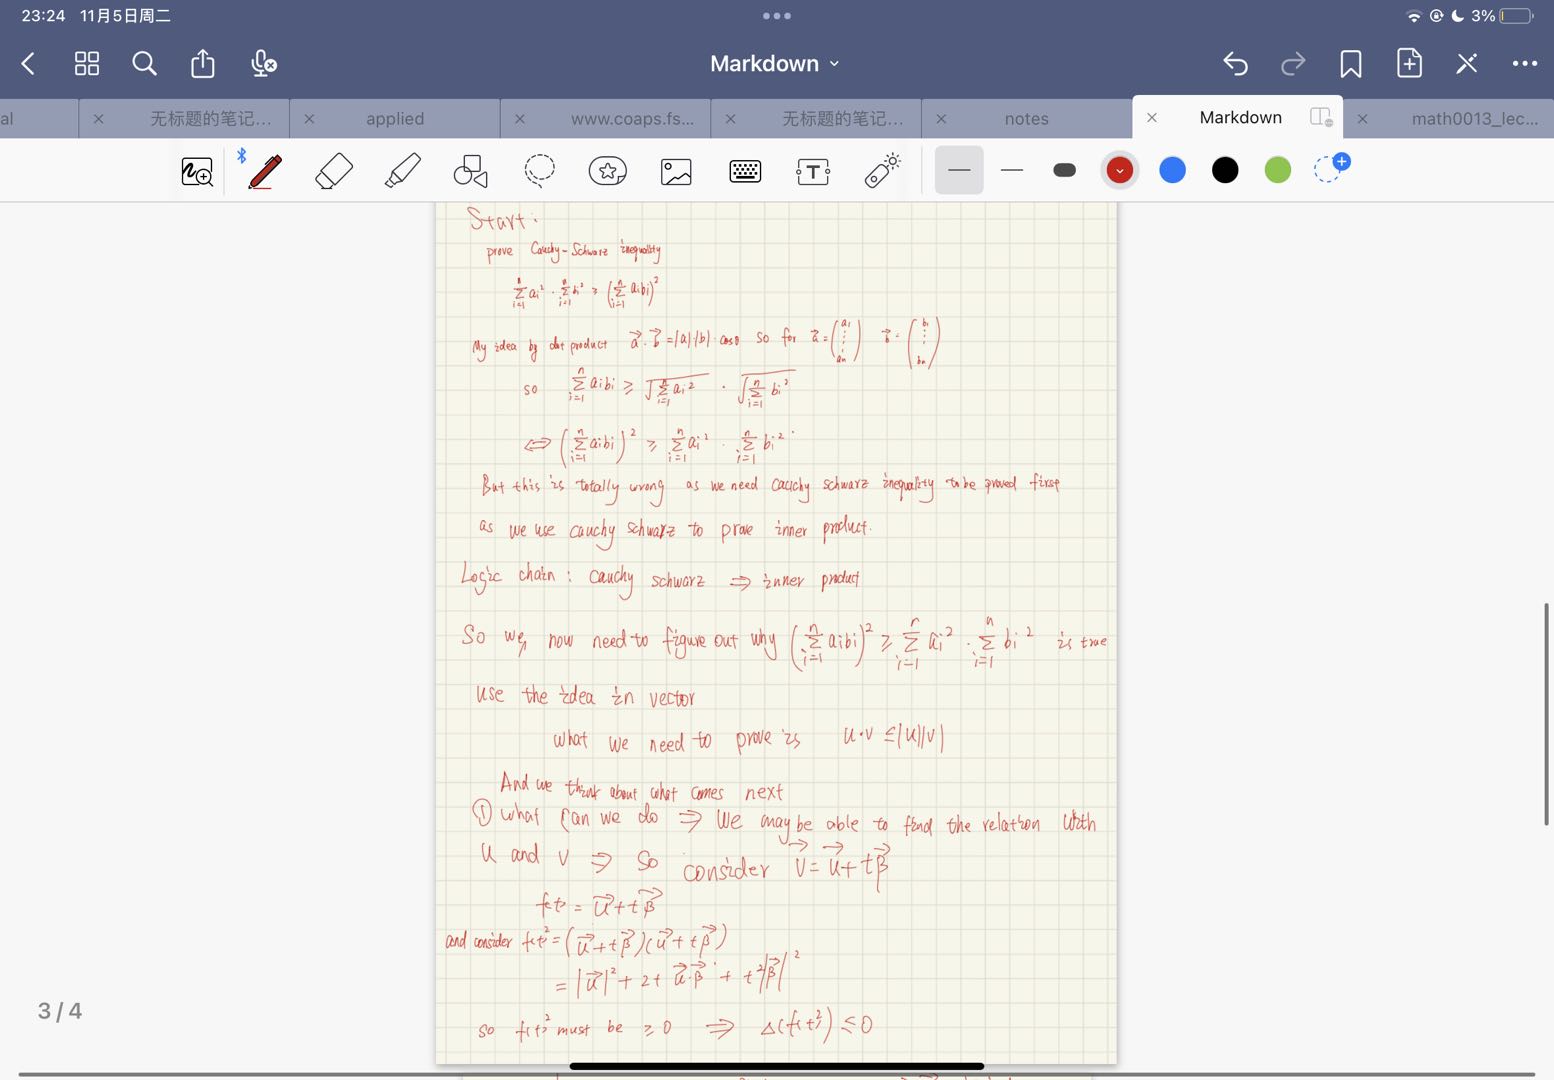 23:24 11月5日周二
3%
Markdown
al
无标题的笔记...
applied
www.coaps.fs...
无标题的笔记...
notes
Markdown
math0013_lec...
Start:
prove Cauchy-Schwarz inequality
∑_{i=1}^{n} ai² · ∑_{i=1}^{n} bi² ≥ (∑_{i=1}^{n} aibi)²
My idea by dot product a⃗ · b⃗ = |a|·|b|·cosθ so for a⃗ = (a1 ⋮ an) b⃗ = (b1 ⋮ bn)
so ∑_{i=1}^{n} aibi ≥ √(∑_{i=1}^{n} ai²) · √(∑_{i=1}^{n} bi²)
⇔ (∑_{i=1}^{n} aibi)² ≥ ∑_{i=1}^{n} ai² · ∑_{i=1}^{n} bi²
But this is totally wrong as we need cauchy schwarz inequality to be proved first
as we use cauchy schwarz to prove inner product.
Logic chain: cauchy schwarz ⇒ inner product
So we now need to figure out why (∑_{i=1}^{n} aibi)² ≥ ∑_{i=1}^{n} ai² · ∑_{i=1}^{n} bi² is true
use the idea in vector
what we need to prove is u·v ≤ |u||v|
And we think about what comes next
① what can we do ⇒ we may be able to find the relation with
u and v ⇒ so consider v⃗ = u⃗ + tβ⃗
f(t) = u⃗ + tβ⃗
and consider f(t)² = (u⃗ + tβ⃗)(u⃗ + tβ⃗)
= |u⃗|² + 2t u⃗·β⃗ + t²|β⃗|²
so f(t)² must be ≥ 0 ⇒ Δ(f(t)²) ≤ 0
3 / 4